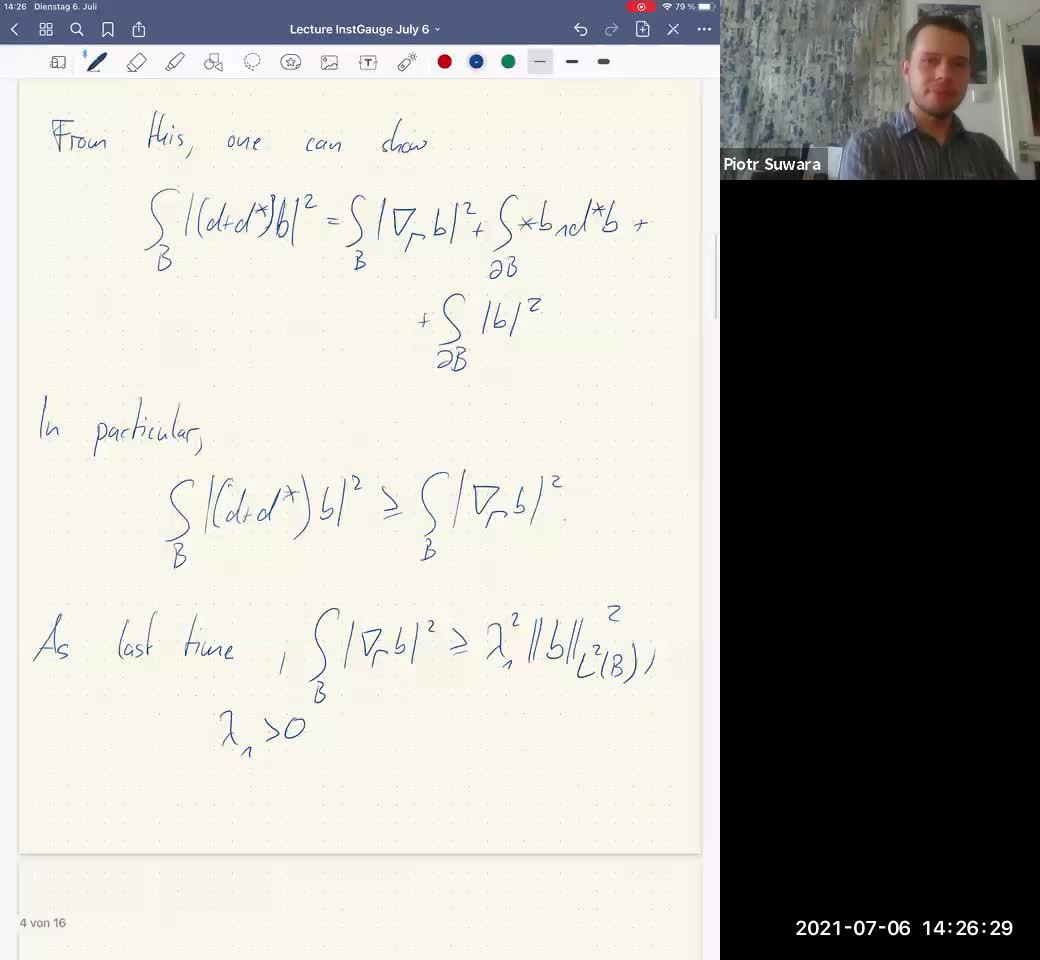 14:26 Dienstag 6. Juli
79 %
Lecture InstGauge July 6
From this, one can show
∫_B |(d+d*)b|² = ∫_B |∇_Γ b|² + ∫_∂B *b ∧ d*b +
+ ∫_∂B |b|²
In particular,
∫_B |(d+d*)b|² ≥ ∫_B |∇_Γ b|².
As last time, ∫_B |∇_Γ b|² ≥ λ₁² ||b||²_L²(B),
λ₁ > 0
4 von 16
Piotr Suwara
2021-07-06 14:26:29